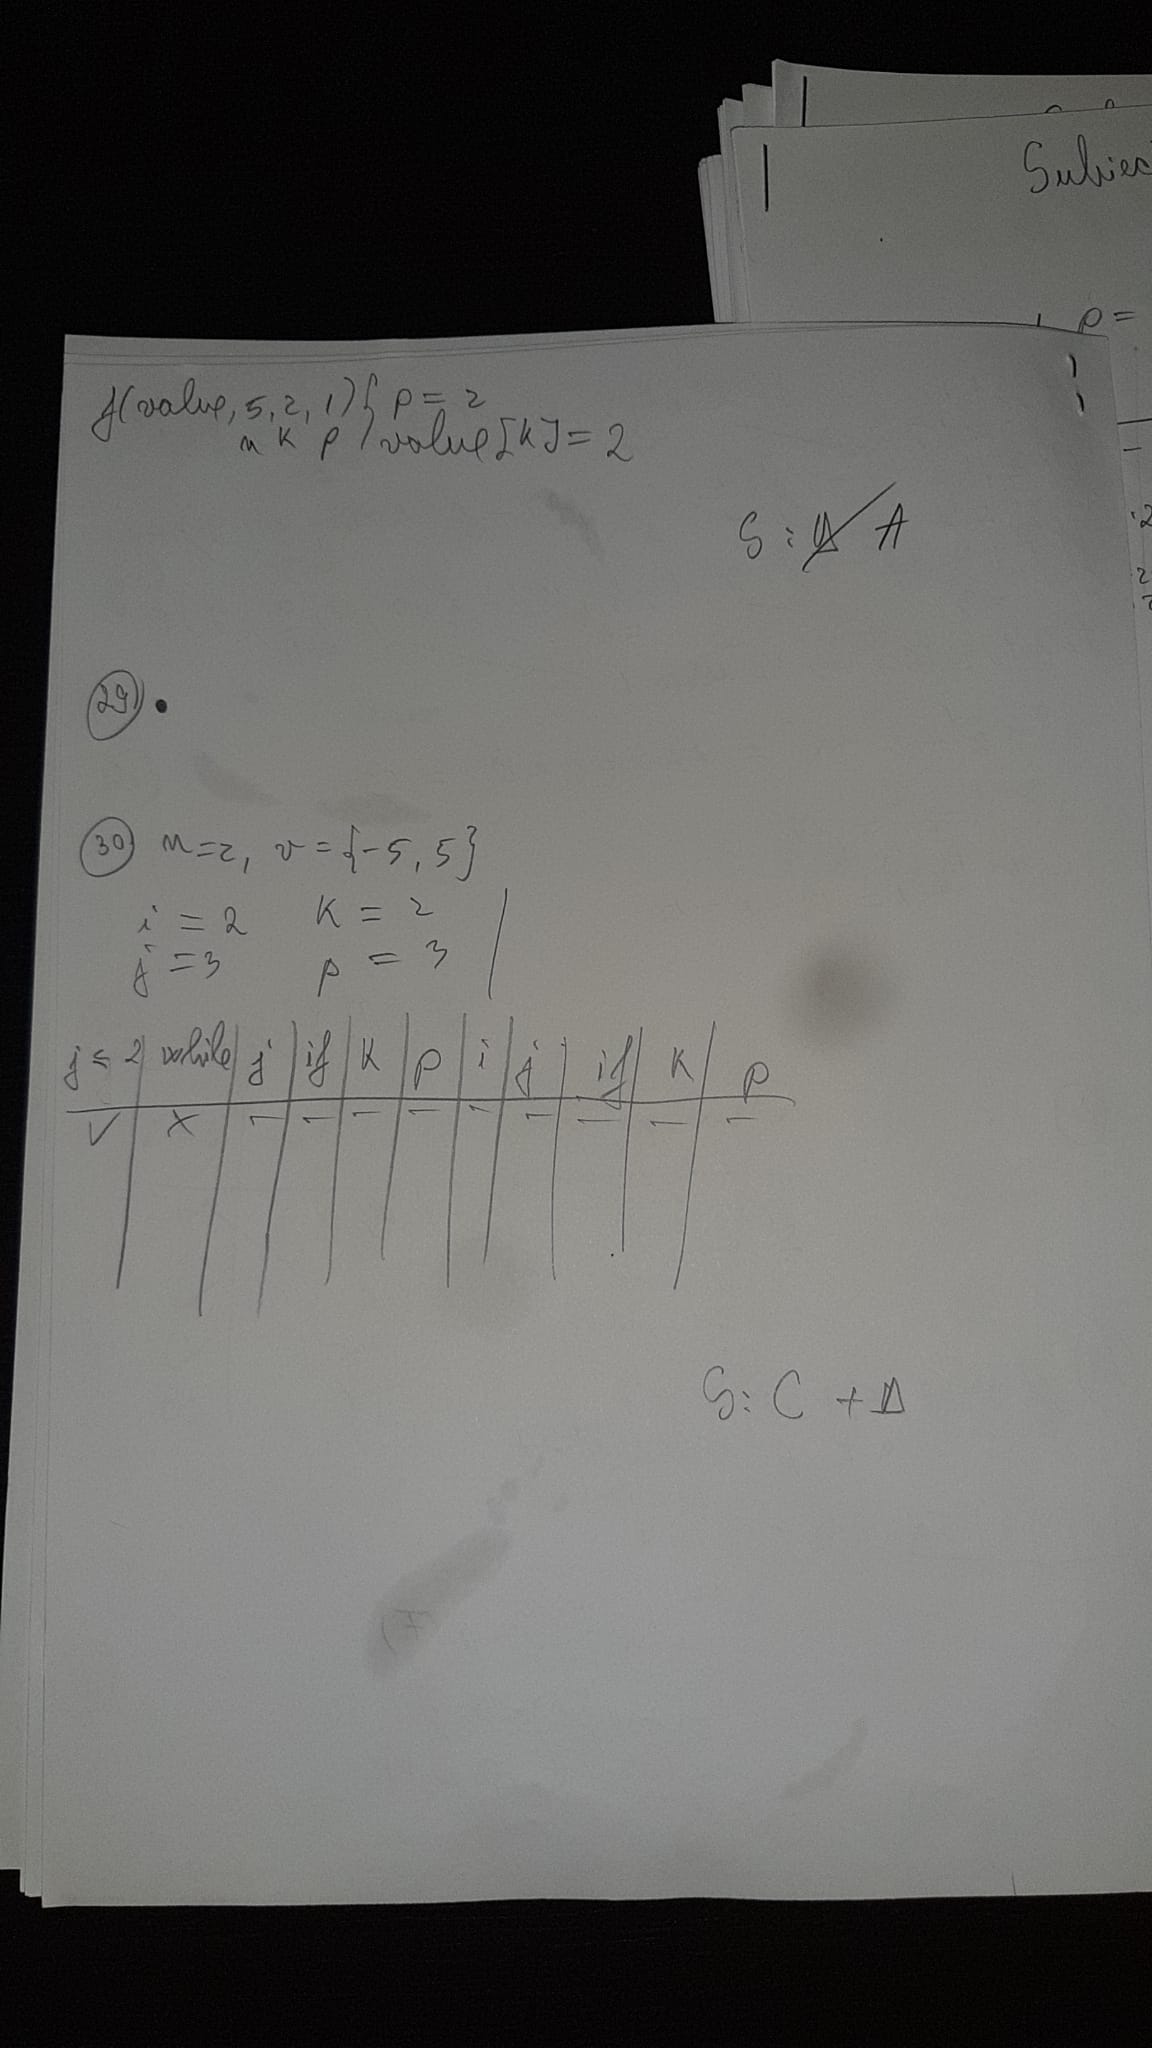 Subiec
p =
f(value, 5, 2, 1) { p = 2
n k p value[k] = 2
S: A
29.
30 n=2, v = {-5, 5}
i = 2 k = 2
j = 3 p = 3
j ≤ 2 while j if k p i j if k p
✓ x - - - - - - - - -
S: C + D